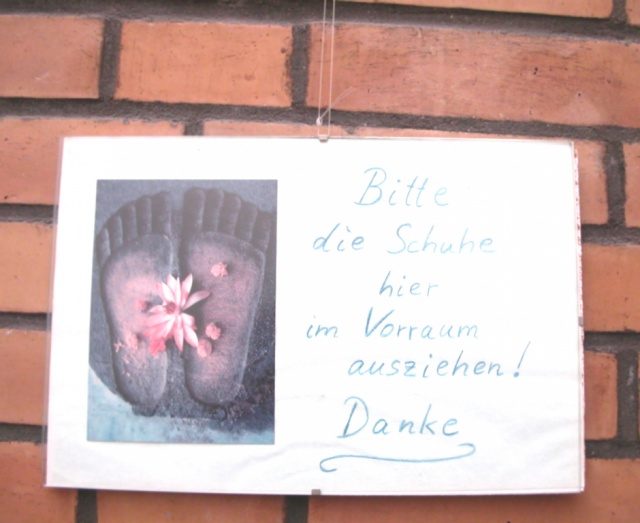 Bitte
die Schuhe
hier
im Vorraum
ausziehen!
Danke